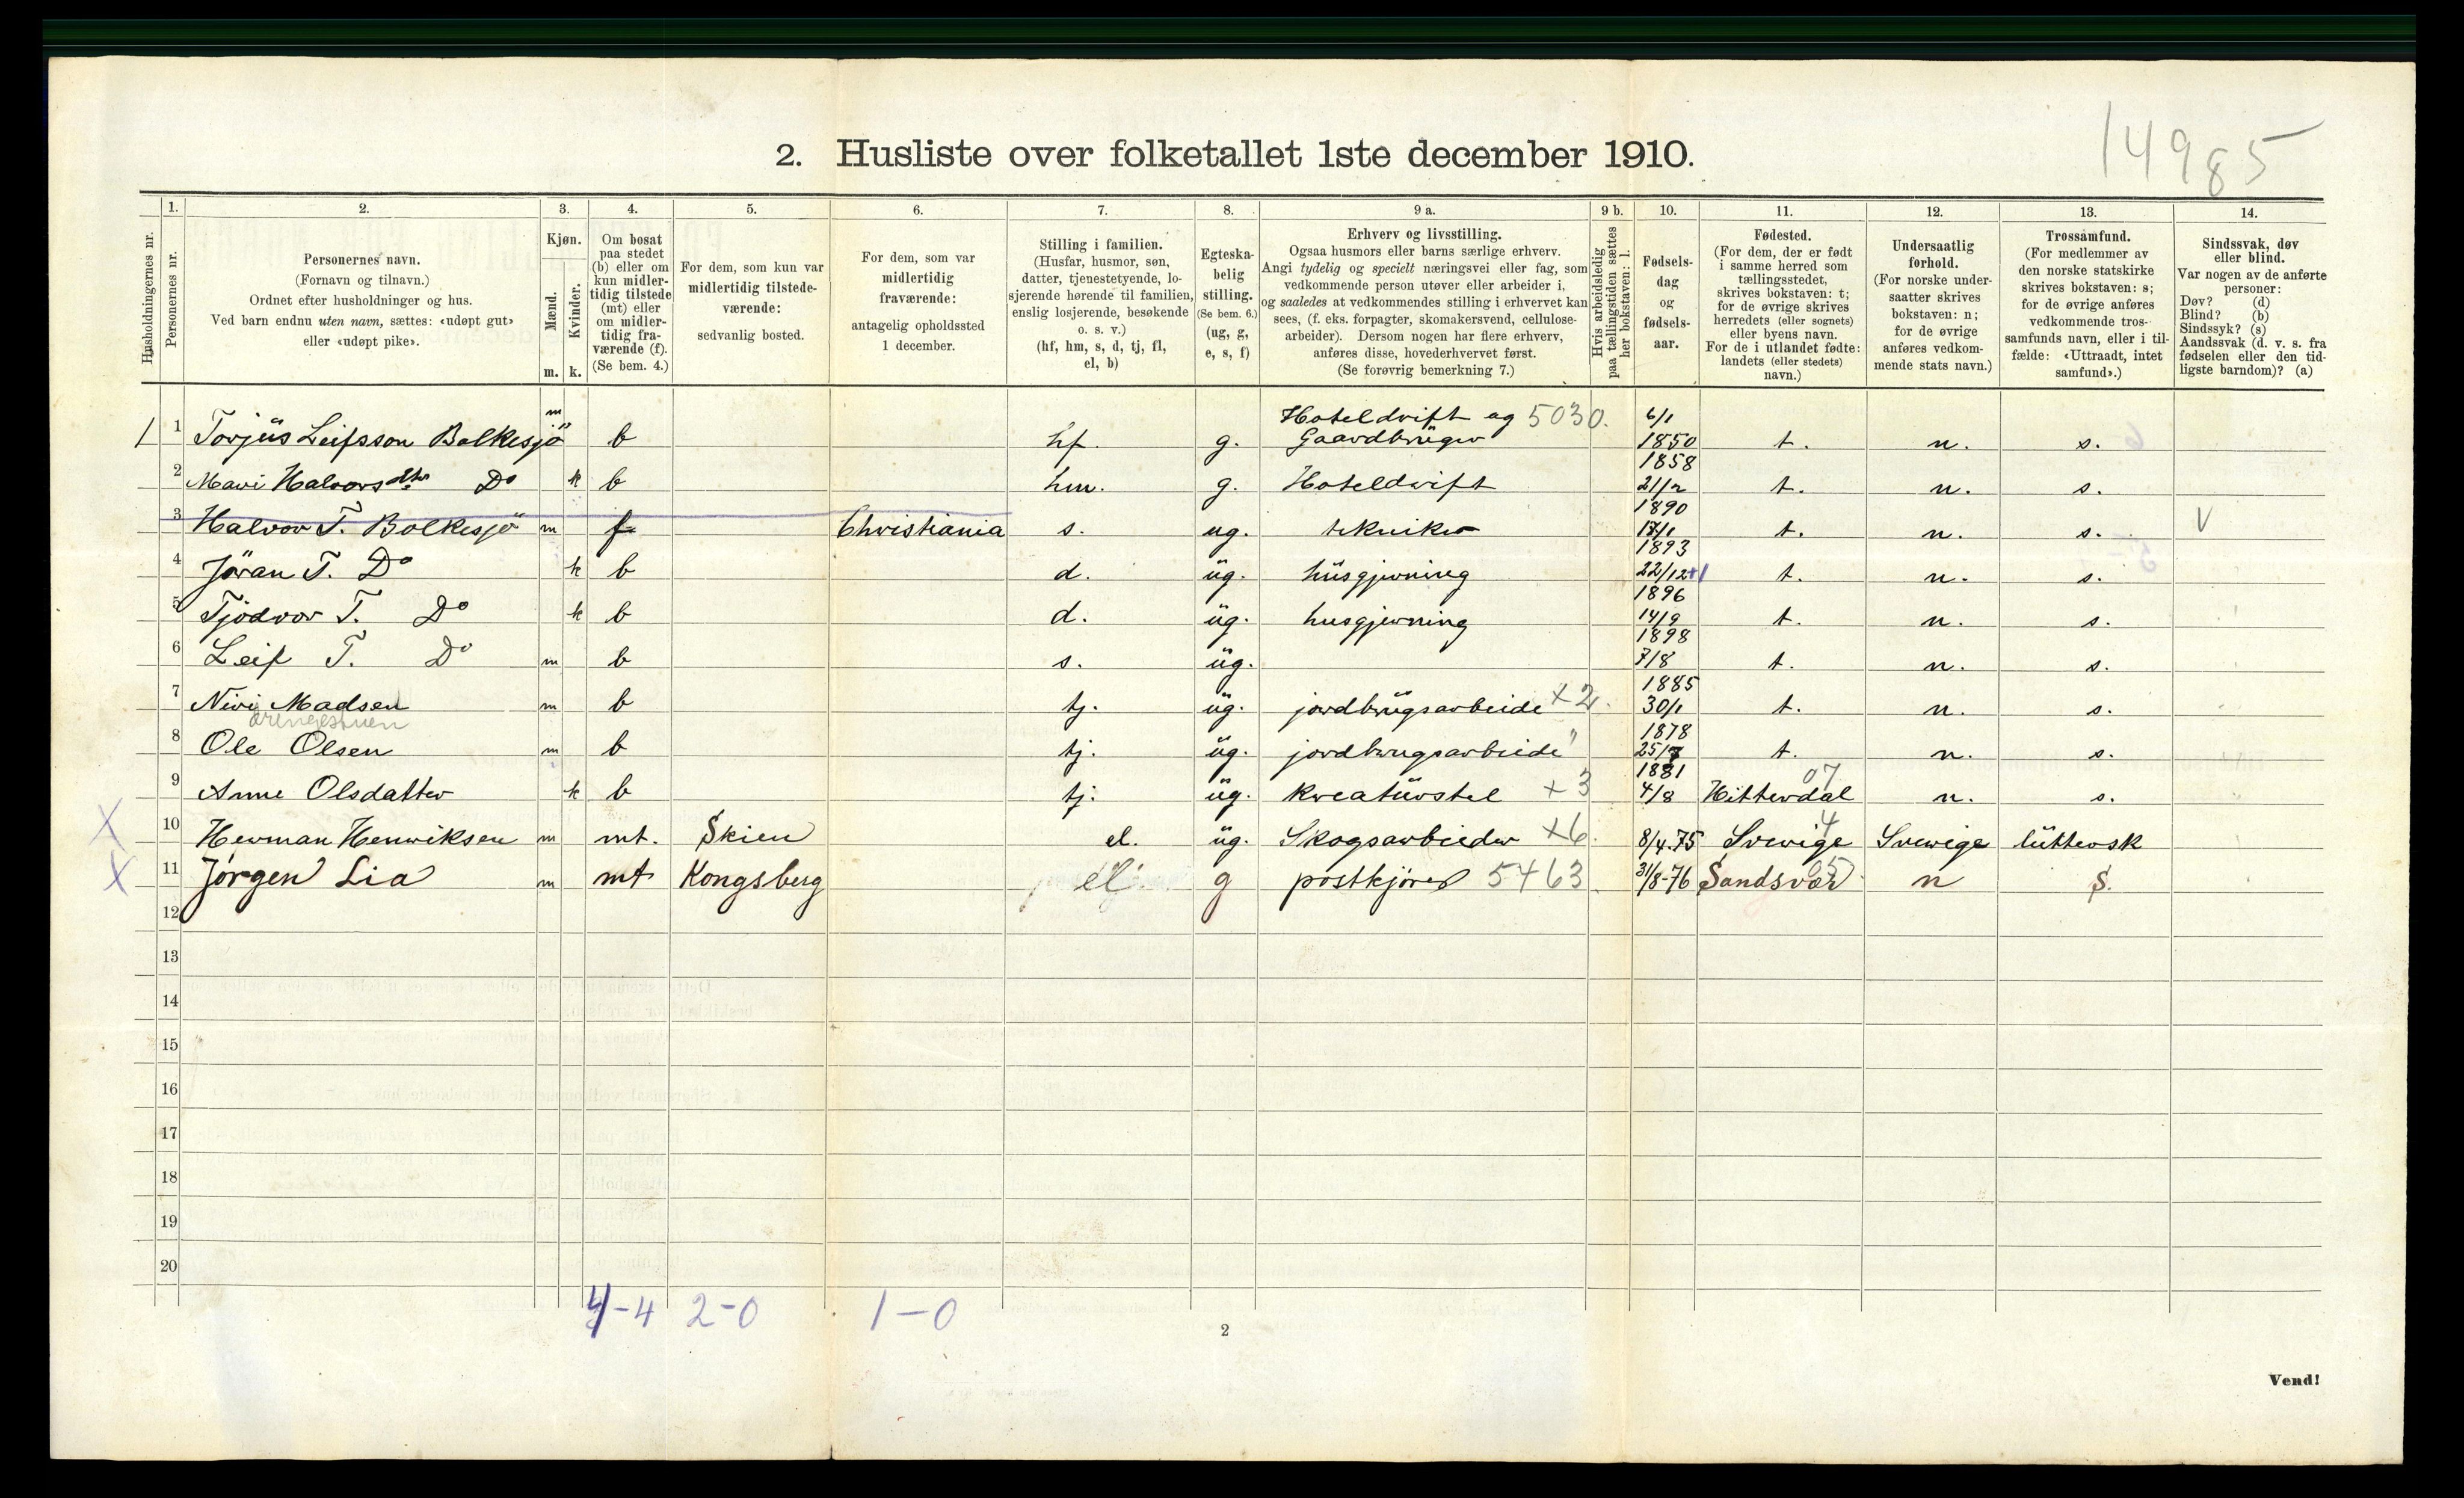 14985
2. Husliste over folketallet 1ste december 1910.
Husholdningernes nr.
1.
Personernes nr.
2.
Personernes navn.
(Fornavn og tilnavn.)
Ordnet efter husholdninger og hus.
Ved barn endnu uten navn, sættes: «udøpt gut»
eller «udøpt pike».
3.
Kjøn.
Mænd.
m.
Kvinder.
k.
4.
Om bosat
paa stedet
(b) eller om
kun midler-
tidig tilstede
(mt) eller
om midler-
tidig fra-
værende (f).
(Se bem. 4.)
5.
For dem, som kun var
midlertidig tilstede-
værende:
sedvanlig bosted.
6.
For dem, som var
midlertidig
fraværende:
antagelig opholdssted
1 december.
7.
Stilling i familien.
(Husfar, husmor, søn,
datter, tjenestetyende, lo-
sjerende hørende til familien,
enslig losjerende, besøkende
o. s. v.)
(hf, hm, s, d, tj, fl,
el, b)
8.
Egteska-
belig
stilling.
(Se bem. 6.)
(ug, g,
e, s, f)
9 a.
Erhverv og livsstilling.
Ogsaa husmors eller barns særlige erhverv.
Angi tydelig og specielt næringsvei eller fag, som
vedkommende person utøver eller arbeider i,
og saaledes at vedkommendes stilling i erhvervet kan
sees, (f. eks. forpagter, skomakersvend, cellulose-
arbeider). Dersom nogen har flere erhverv,
anføres disse, hovederhvervet først.
(Se forøvrig bemerkning 7.)
9 b.
Hvis arbeidsledig
paa tællingstiden sættes
her bokstaven: l.
10.
Fødsels-
dag
og
fødsels-
aar.
11.
Fødested.
(For dem, der er født
i samme herred som
tællingsstedet,
skrives bokstaven: t;
for de øvrige skrives
herredets (eller sognets)
eller byens navn.
For de i utlandet fødte:
landets (eller stedets)
navn.)
12.
Undersaatlig
forhold.
(For norske under-
saatter skrives
bokstaven: n;
for de øvrige
anføres vedkom-
mende stats navn.)
13.
Trossamfund.
(For medlemmer av
den norske statskirke
skrives bokstaven: s;
for de øvrige anføres
vedkommende tros-
samfunds navn, eller i til-
fælde: «Uttraadt, intet
samfund».)
14.
Sindssvak, døv
eller blind.
Var nogen av de anførte
personer:
Døv? (d)
Blind? (b)
Sindssyk? (s)
Aandssvak (d. v. s. fra
fødselen eller den tid-
ligste barndom)? (a)
1 1 Torjüs Leifsson Bolkesjö m b hf. g. Hoteldrift og 5030. Gaardbrüger 6/1 1850 t. n. s.
2 Mari Halvorsdtr Do k b hm. g. Hoteldrift 1858 21/2 t. n. s.
3 Halvor T. Bolkesjö m f Christiania s. ug. tekniker 1890 17/1 t. n. s. V
4 Jöran T. Do k b d. üg. hüsgjerning 1893 22/12 +1 t. n. s.
5 Tjödvor T. Do k b d. üg. husgjerning 1896 14/9 t. n. s.
6 Leif T. Do m b s. üg. 1898 7/8 t. n. s.
7 Nivi Madsen m b tj. üg. jordbrügsarbeide ×2. 1885 30/1 t. n. s.
8 Ole Olsen m b tj. üg. jordbrugsarbeide " 1878 25/7 t. n. s.
9 Anne Olsdatter k b tj. üg. kreatürstel +3 1881 4/8 Hitterdal 07 n. s.
X 10 Herman Henriksen m mt. Skien el. üg. Skogsarbeider ×6. 8/4.75 Sverige 4 Sverige lüttersk
X 11 Jörgen Lia m mt Kongsberg el. g postkjører 5463 31/8-76 Sandsvær 05 n s.
12
13
14
15
16
17
18
19
20
4-4 2-0 1-0
2
Vend!